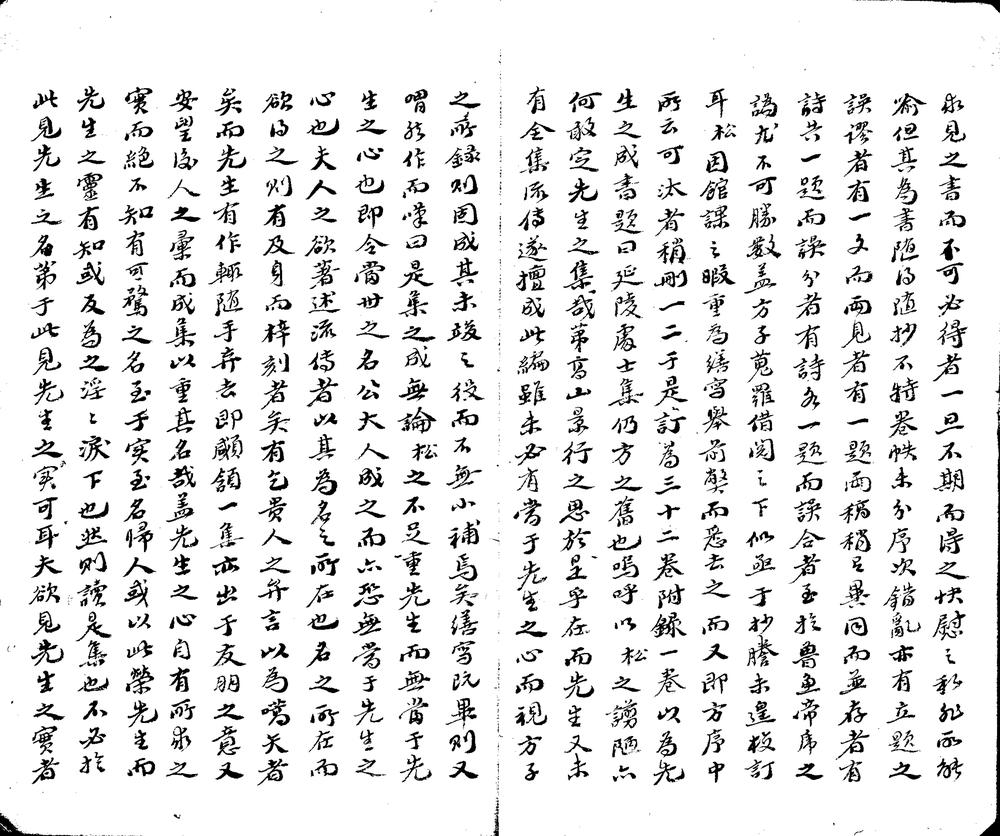 求見之書而不可必得者一旦不期而得之快慰之私非所能
喻但其為書随得随抄不特卷帙未分序次錯亂亦有立題之
誤謬者有一文而兩見者有一題兩稿稍呈異同而並存者有
詩共一題而誤分者有詩各一題而誤合者至於魯魚帝席之
譌尤不可勝數盖方子蒐羅借閲之下似亟于抄謄未遑校訂
耳松因館課之暇重為繕寫舉前獘而悉去之而又即方序中
所云可汰者稍刪一二于是訂為三十二卷附録一卷以為先
生之成書題曰延陵處士集仍方之舊也嗚呼以松之譾陋亦
何敢定先生之集哉第高山景行之思於是乎在而先生又未
有全集流傳遂擅成此編雖未必有當于先生之心而視方子
之所錄則固成其未竣之役而不無小補焉矣繕寫既畢則又
喟然作而嘆曰是集之成無論松之不足重先生而無當于先
生之心也即令當世之名公大人成之而亦恐無當于先生之
心也夫人之欲著述流傳者以其為名之所在也名之所在而
欲得之則有及身而梓刻者矣有乞貴人之弁言以為嚆矢者
矣而先生有作輒随手弃去即顑頷一集亦出于友朋之意又
安望後人之彙而成集以重其名哉盖先生之心自有所求之
實而絕不知有可騖之名至于實至名歸人或以此榮先生而
先生之靈有知或反為之浮之淚下也然則讀是集也不必於
此見先生之名第于此見先生之实可耳夫欲見先生之實者